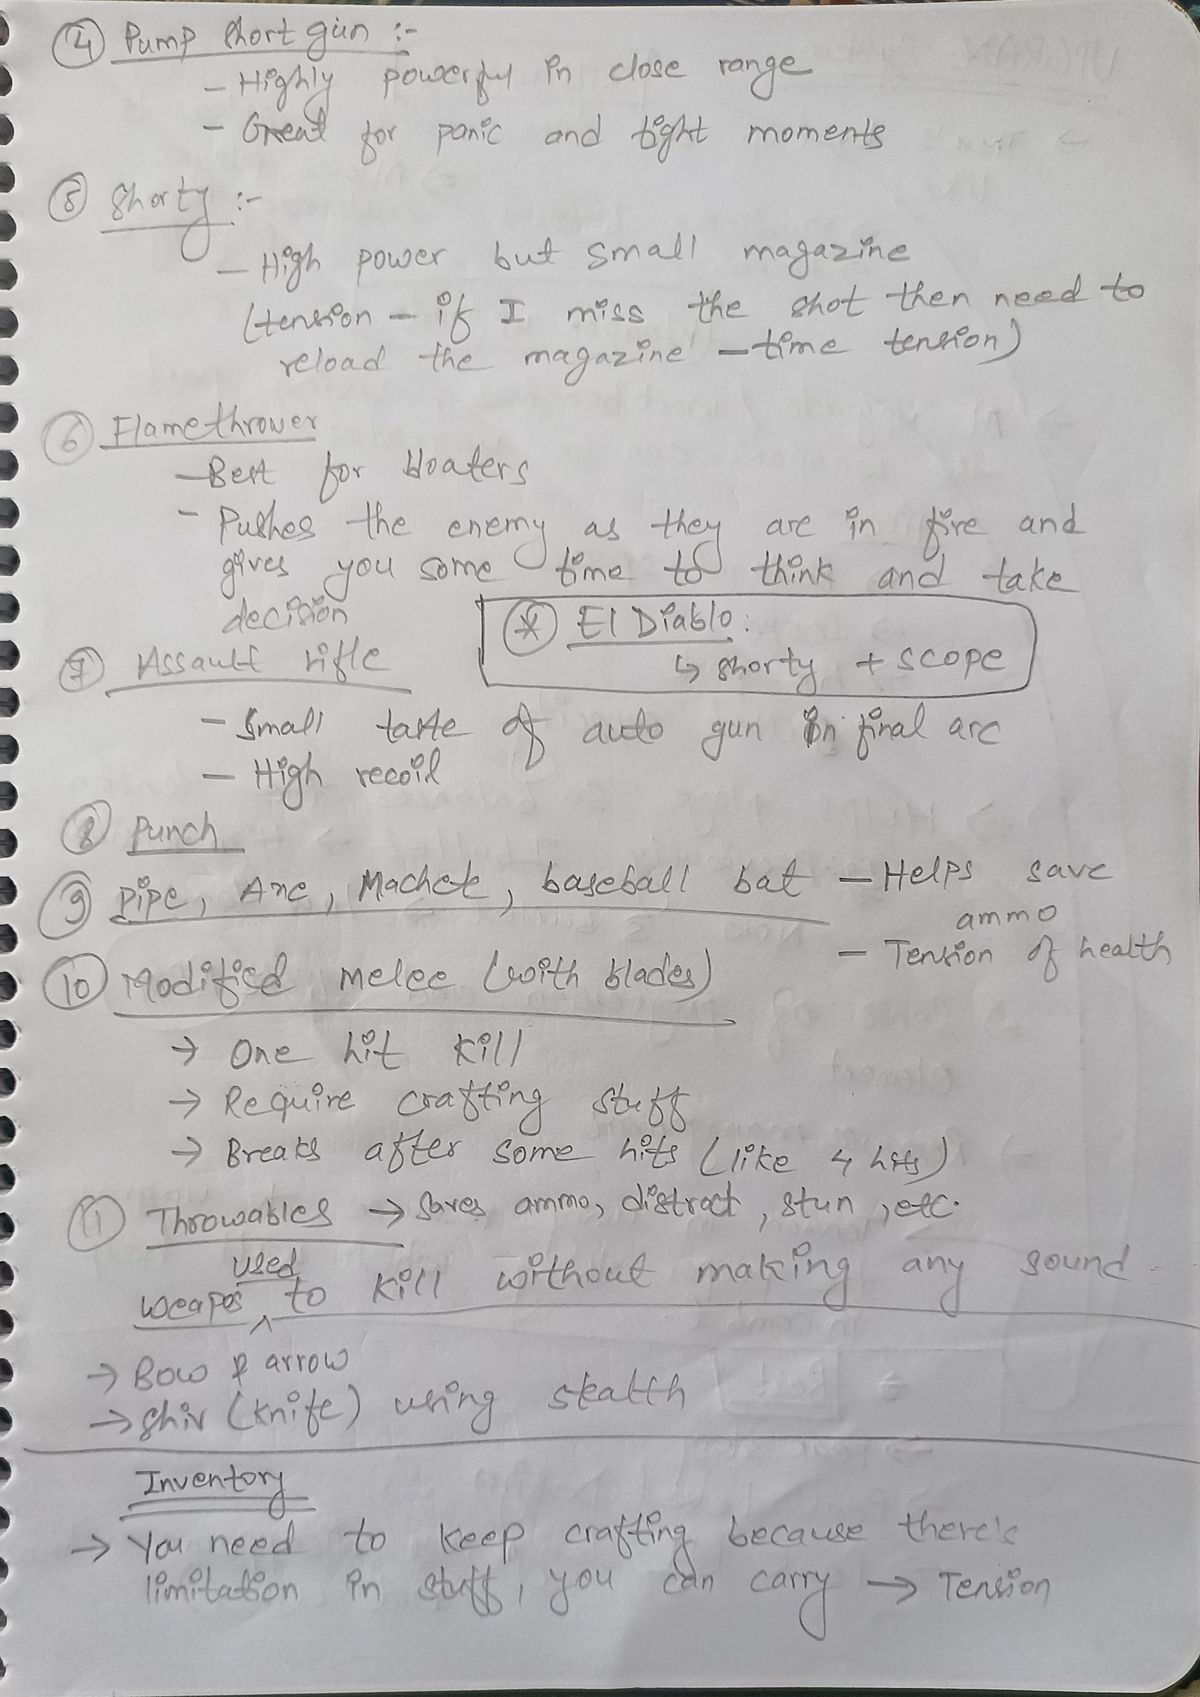 ④ Pump Shortgun :-
- Highly powerful in close range
- Great for panic and tight moments
⑤ Shorty :-
- High power but small magazine
(tension - if I miss the shot then need to
reload the magazine - time tension)
⑥ Flamethrower
- Best for bloaters
- Pushes the enemy as they are in fire and
gives you some time to think and take
decision
⊛ El Diablo:
↳ shorty + scope
⑦ Assault rifle
- Small taste of auto gun in final arc
- High recoil
⑧ Punch
⑨ Pipe, Axe, Machete, baseball bat - Helps save
ammo
- Tension of health
⑩ Modified melee (with blades)
→ One hit kill
→ Require crafting stuff
→ Breaks after some hits (like 4 hits)
⑪ Throwables → Saves ammo, distract, stun, etc.
weapos ^ used to kill without making any sound
→ Bow & arrow
→ Shiv (knife) using stealth
Inventory
→ You need to keep crafting because there's
limitation in stuff, you can carry → Tension